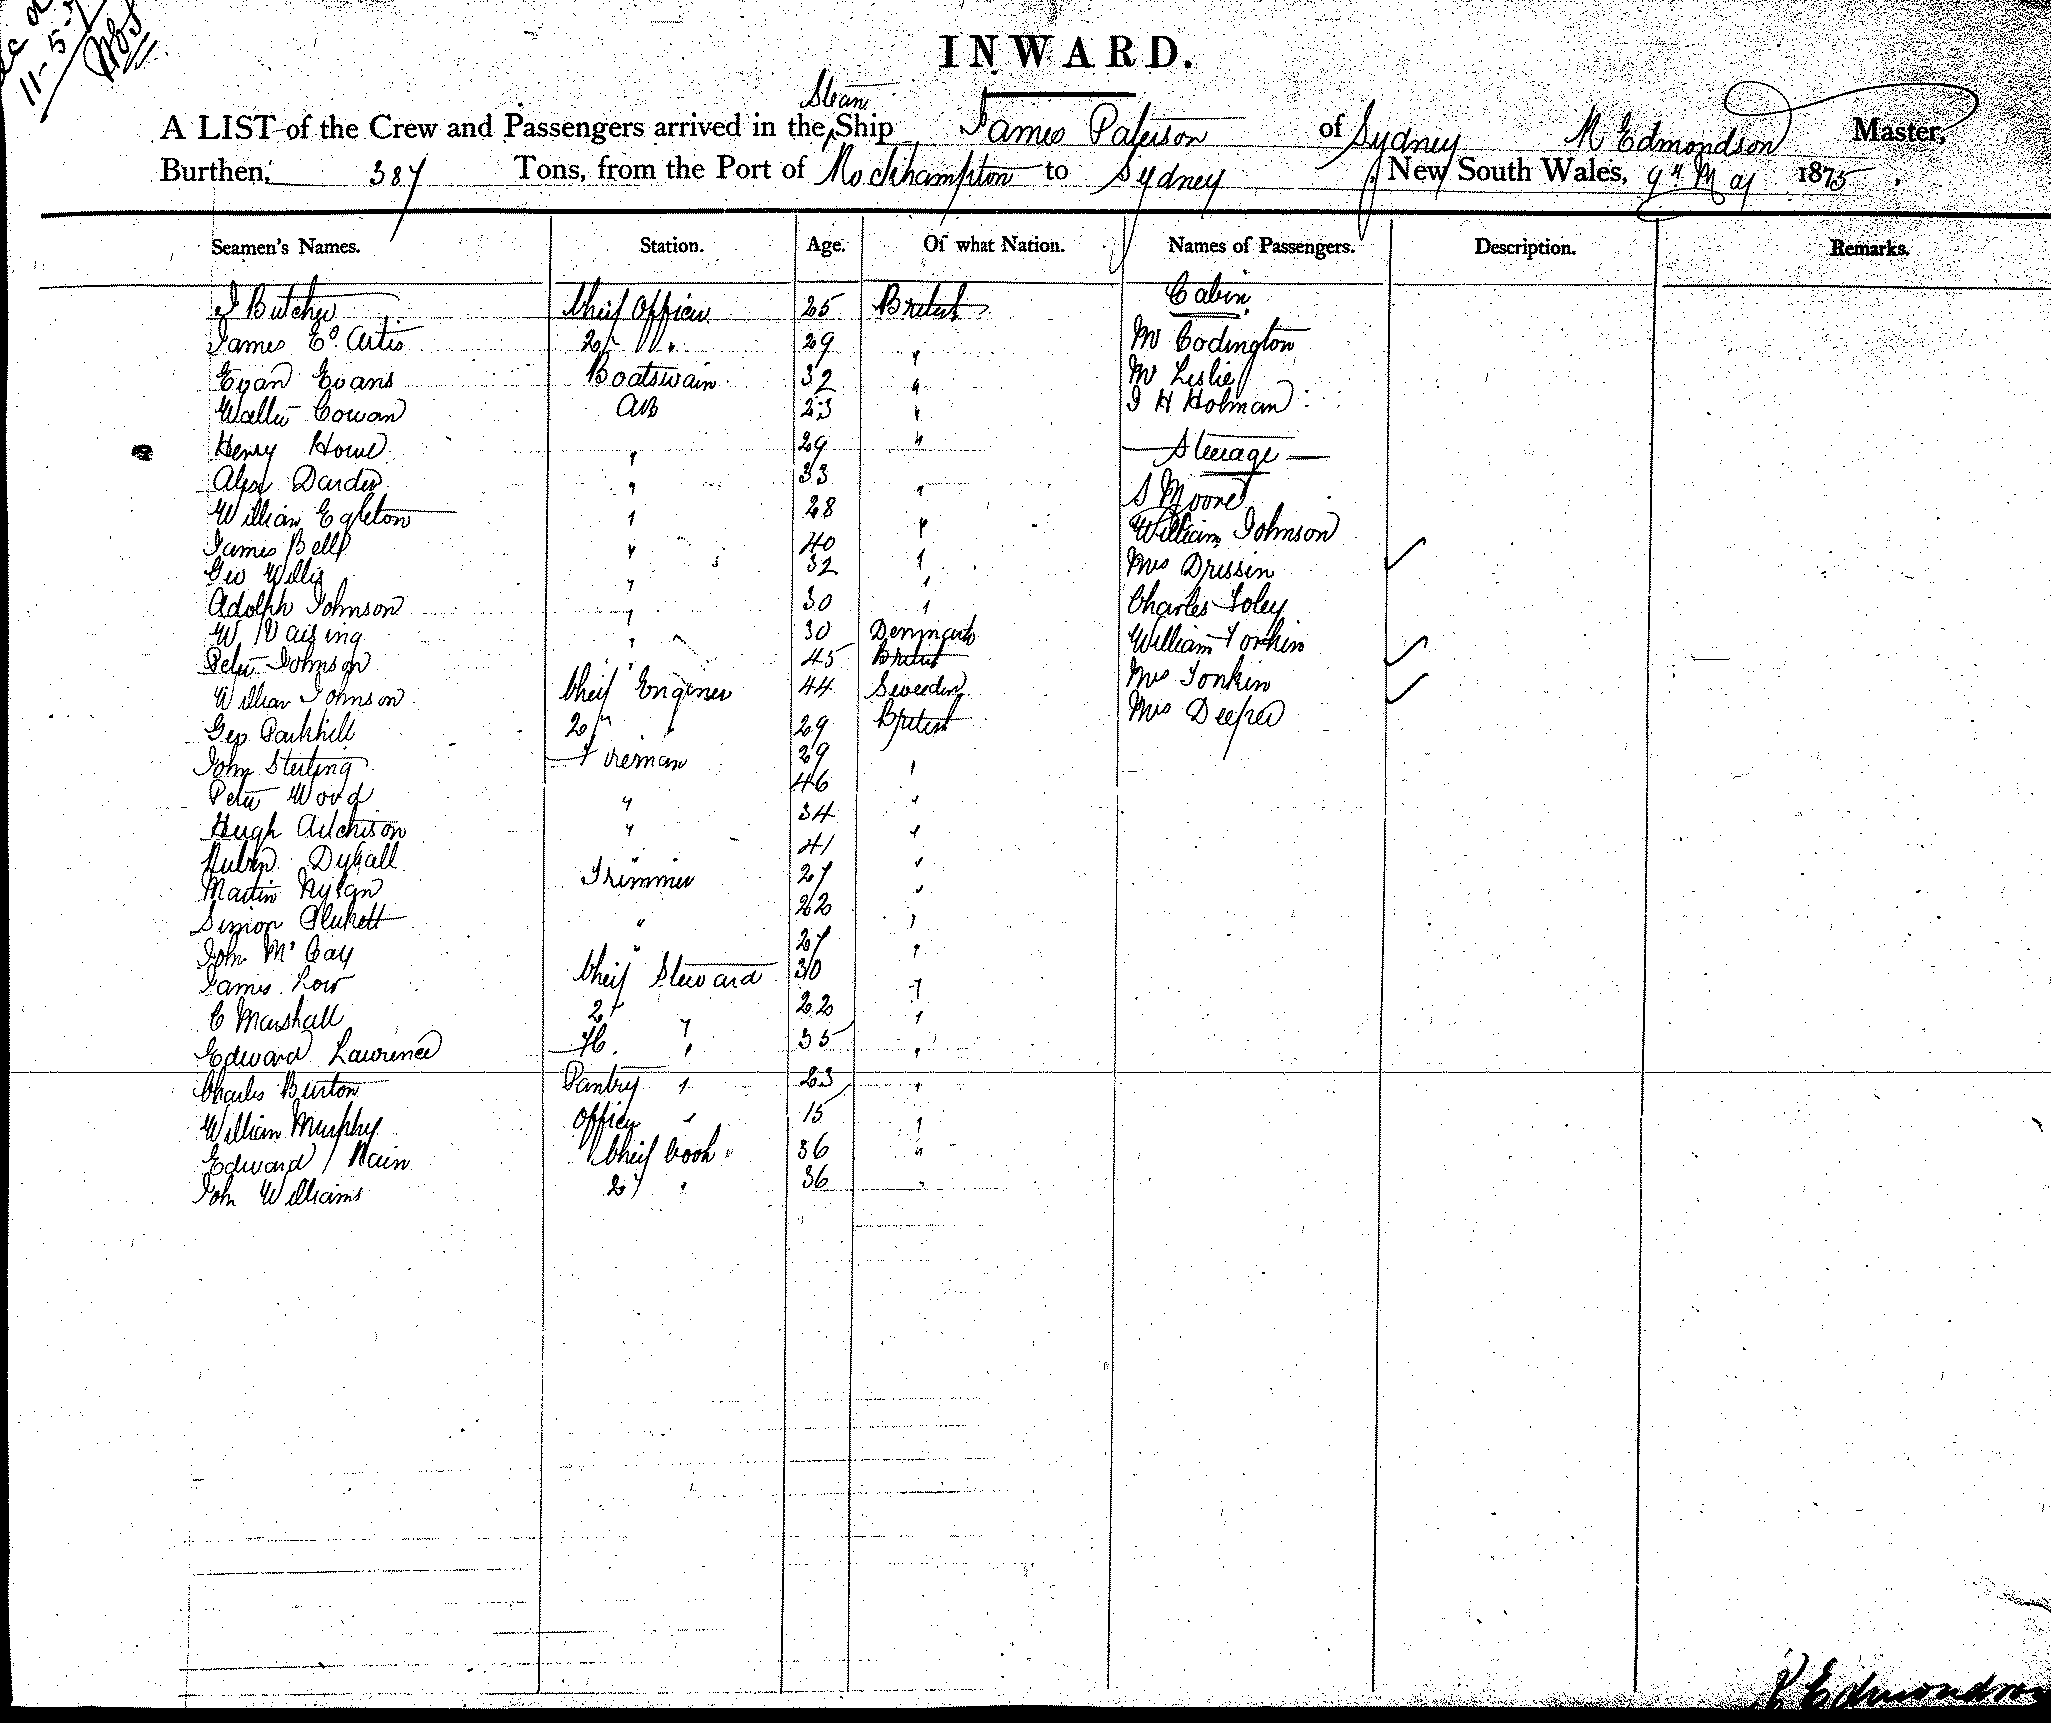 11-5-75
INWARD.
Steam
A LIST of the Crew and Passengers arrived in the Ship James Paterson of Sydney R Edmondson Master,
Burthen, 387 Tons, from the Port of Rockhampton to Sydney New South Wales, 9th May 1875
Seamen's Names. Station. Age. Of what Nation. Names of Passengers. Description. Remarks.
Cabin
J Butcher Cheif Officer 25 British
James Ed Artis 2d " 29 " Mr Codington
Evan Evans Boatswain 32 " Mr Leslie
Walter Cowan AB 23 " J H Holman
Henry Howe " 29 " Steerage
Alex Darder " 33 " S Moore
William Egleton " 28 " William Johnson
James Bell " 40 " Mrs Drissin
Geo Willis " 32 " Charles Foley
Adolph Johnson " 30 "
W " 30 Denmark William Tonkin
Peter Johnson " 45 British Mrs Tonkin
William Johnson Cheif Enginer 44 Sweeden Mrs Deeper
Geo Parkhill 2d " 29 British
John Sterling Fireman 29 "
Peter Wood " 46 "
Hugh Aitchison " 34 "
Ruben Dyball " 41 "
Martin Nylan Trimmer 27 "
Simion Plukett " 22 "
John McCay " 27 "
James Low Cheif Steward 30 "
C Marshall 2d " 22 "
Edward Lawrence Fc. " 35 "
Charles Burton Pantry " 23 "
William Murphy Officer " 15 "
Edward Nain Cheif Cook 36 "
John Williams 2d " 36 "
R Edmondson